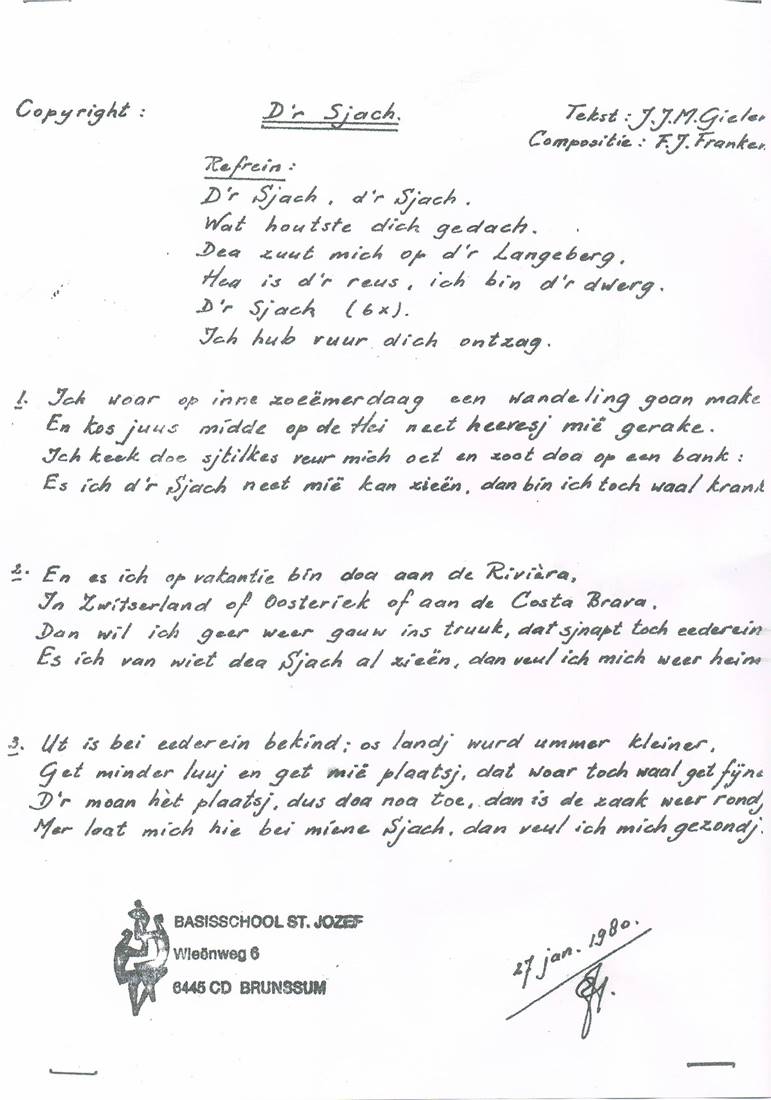 Copyright : D'r Sjach. Tekst : J.J.M. Gielen
Compositie : F.J. Franken
Refrein :
D'r Sjach, d'r Sjach.
Wat houtste dich gedach.
Dea zuut mich op d'r Langeberg,
Hea is d'r reus, ich bin d'r dwerg.
D'r Sjach (6x).
Ich hub vuur dich ontzag.
1. Ich woar op inne zoeëmerdaag een wandeling goan make
En kos juus midde op de Hei neet heeresj mië gerake.
Ich keek doe sjtilkes veur mich oet en zoot doa op een bank :
Es ich d'r Sjach neet mië kan zieën, dan bin ich toch waal krank
2. En es ich op vakantie bin doa aan de Rivièra,
In Zwitserland of Oosteriek of aan de Costa Brava,
Dan wil ich geer weer gauw ins truuk, dat sjnapt toch eederein
Es ich van wiet dea Sjach al zieën, dan veul ich mich weer heim
3. Ut is bei eederein bekind; os landj wurd ummer kleiner,
Get minder luuj en get mië plaatsj, dat woar toch waal get fijne
D'r moan hèt plaatsj, dus doa noa toe, dan is de zaak weer rond,
Mer loat mich hie bei miene Sjach, dan veul ich mich gezondj.
BASISSCHOOL ST. JOZEF
Wieënweg 6
6445 CD BRUNSSUM
27 jan. 1980.